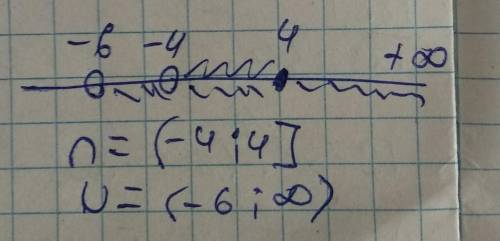 -6 -4 4 +∞
∩ = (-4 ; 4]
∪ = (-6 ; ∞)